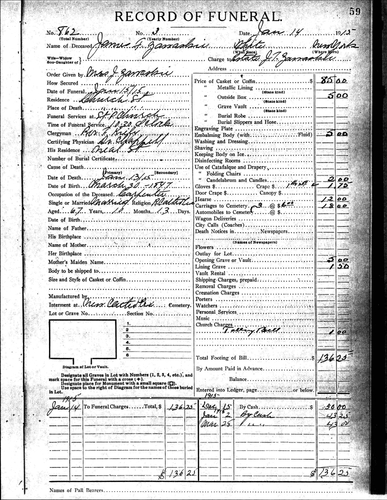 59
RECORD OF FUNERAL.
No. 862 No. 3 Date Jan 14 1915
(Total Number) (Yearly Number)
Name of Deceased James F. White New York
Charge
Address
Order Given by Mrs J.
How Secured
Date of Funeral Jan 15/15
Residence Church St
Place of Death
Funeral Services at St P Church
Time of Funeral Service 10.30 O'clock
Clergyman
Certifying Physician Dr Campbell
Residence
Number of Burial Certificate
Cause of Death
(Primary)
Date of Death Jan 13/15
Date of Birth March 30 - 1847
Occupation of the Deceased Carpenter
Single or Married Married Religion Catholic
Age: 67 Years, Months, 13 Days.
Name of Father
His Birthplace
Name of Mother
Her Birthplace
Mother's Maiden Name
Body to be shipped to
Size and Style of Casket or Coffin
Manufactured by
Interment at Cemetery.
Lot or Grave No. Section No.
Diagram of Lot or Vault.
Designate all Graves in Lot with Numbers (1, 2, 3, 4, etc.), and mark space for this Funeral with a cross (+).
Designate place for Monument with a small square (□).
Use space to the right of Diagram for names of those buried in Lot.
Price of Casket or Coffin $ 85 00
Metallic Lining
Outside Box 5 00
Grave Vault
Burial Robe
Burial Slippers and Hose
Engraving Plate
Embalming Body (with Fluid) $ 5 00
Washing and Dressing
Shaving
Keeping Body on Ice
Disinfecting Rooms
Use of Catafalque and Drapery
" Folding Chairs
" Candelabrum and Candles 2 00
Gloves $ Crape $ 1.70
Door Crape $ Canopy $
Hearse 12 00
Carriages to Cemetery 3 @ $6.00 18 00
Automobiles to Cemetery @ $
Wagon Deliveries
City Calls (Coach)
Death Notices in Newspapers
(Names of Newspapers)
Flowers
Outlay for Lot
Opening Grave or Vault 5 00
Lining Grave 1 50
Vault Rental
Shipping Charges, prepaid
Removal Charges
Cremation Charges
Porters
Watchers
Personal Services
Music
Church Charges
Tolling Bell 1 00
Total Footing of Bill $ 136 25
By Amount Paid in Advance
Balance $
Entered into Ledger, page or below.
1915 1915
Jan 14 To Funeral Charges, Total, $ 136 25 15 By Cash $ 50.00
By Cash 43 25
Mar 25 " " 43 00
$ 136 25 $ 136 25
Names of Pall Bearers